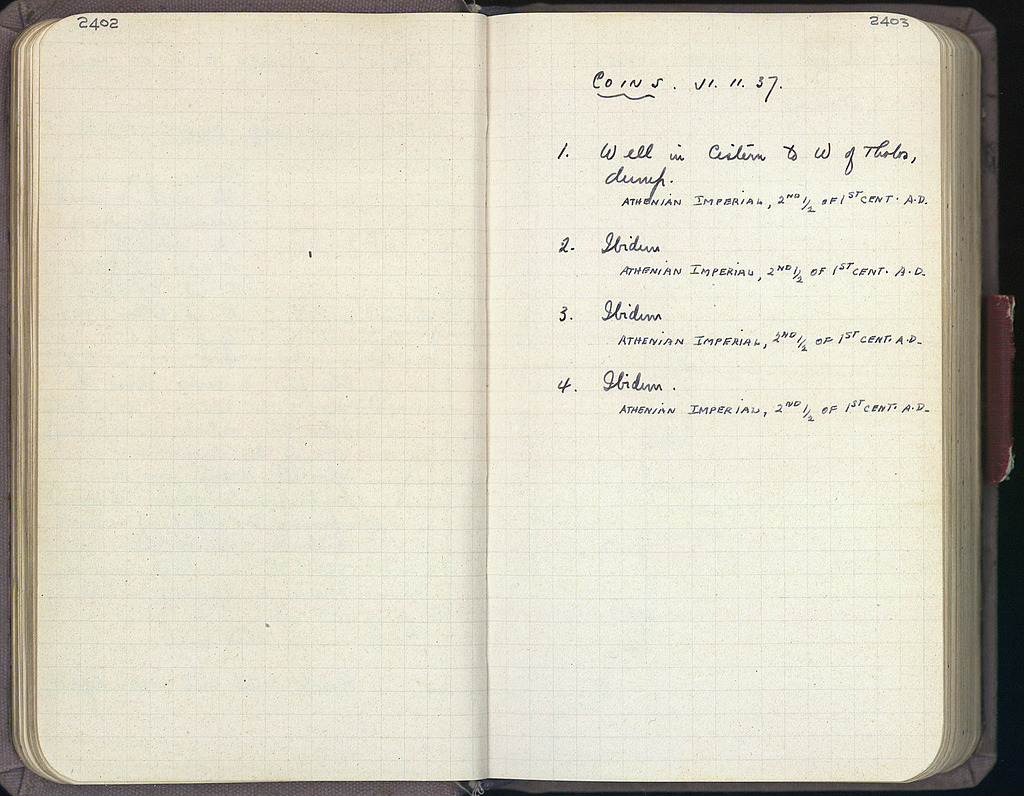 2402
2403
COINS. VI. 11. 37.
1. Well in Cistern to W of Tholos,
dump.
ATHENIAN IMPERIAL, 2ND 1/2 OF 1ST CENT. A.D.
2. Ibidem
ATHENIAN IMPERIAL, 2ND 1/2 OF 1ST CENT. A.D.
3. Ibidem
ATHENIAN IMPERIAL, 2ND 1/2 OF 1ST CENT. A.D.
4. Ibidem.
ATHENIAN IMPERIAL, 2ND 1/2 OF 1ST CENT. A.D.